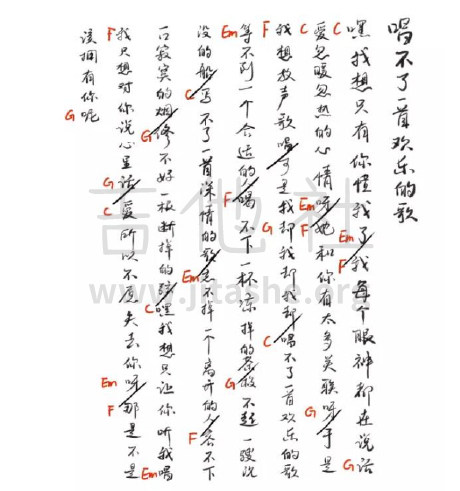 唱不了一首欢乐的歌
C 嘿我想只有你懂我了 Em F 我每个眼神都在说话 G
C 爱忽暖忽热的心情呀 Em F 她和你有太多关联呀 G 于是
F 我想放声歌唱 可是我却我却我却 G C 唱不了一首欢乐的歌
Em 等不到一个合适的 F 喝不下一杯凉掉的茶 G 救不起一艘沉
没的船 C 写不了一首深情的歌 Em 忘不掉一个离开的人 F 吞不下
一口寂寞的烟 G 修不好一根断掉的弦 C 嘿我想只让你听我唱 Em
F 我只想对你说心里话 G C 爱所以不愿失去你呀 Em F 那是不是
该拥有你呢 G
吉他社
www.jitashe.org